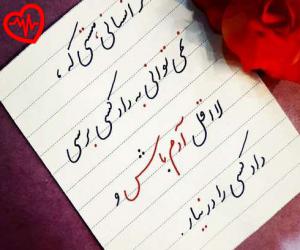 ر انسانی هستی که،
نمی توانی به داد کسی برسی
لااقل آدم باش و
داد کسی را در نیار.